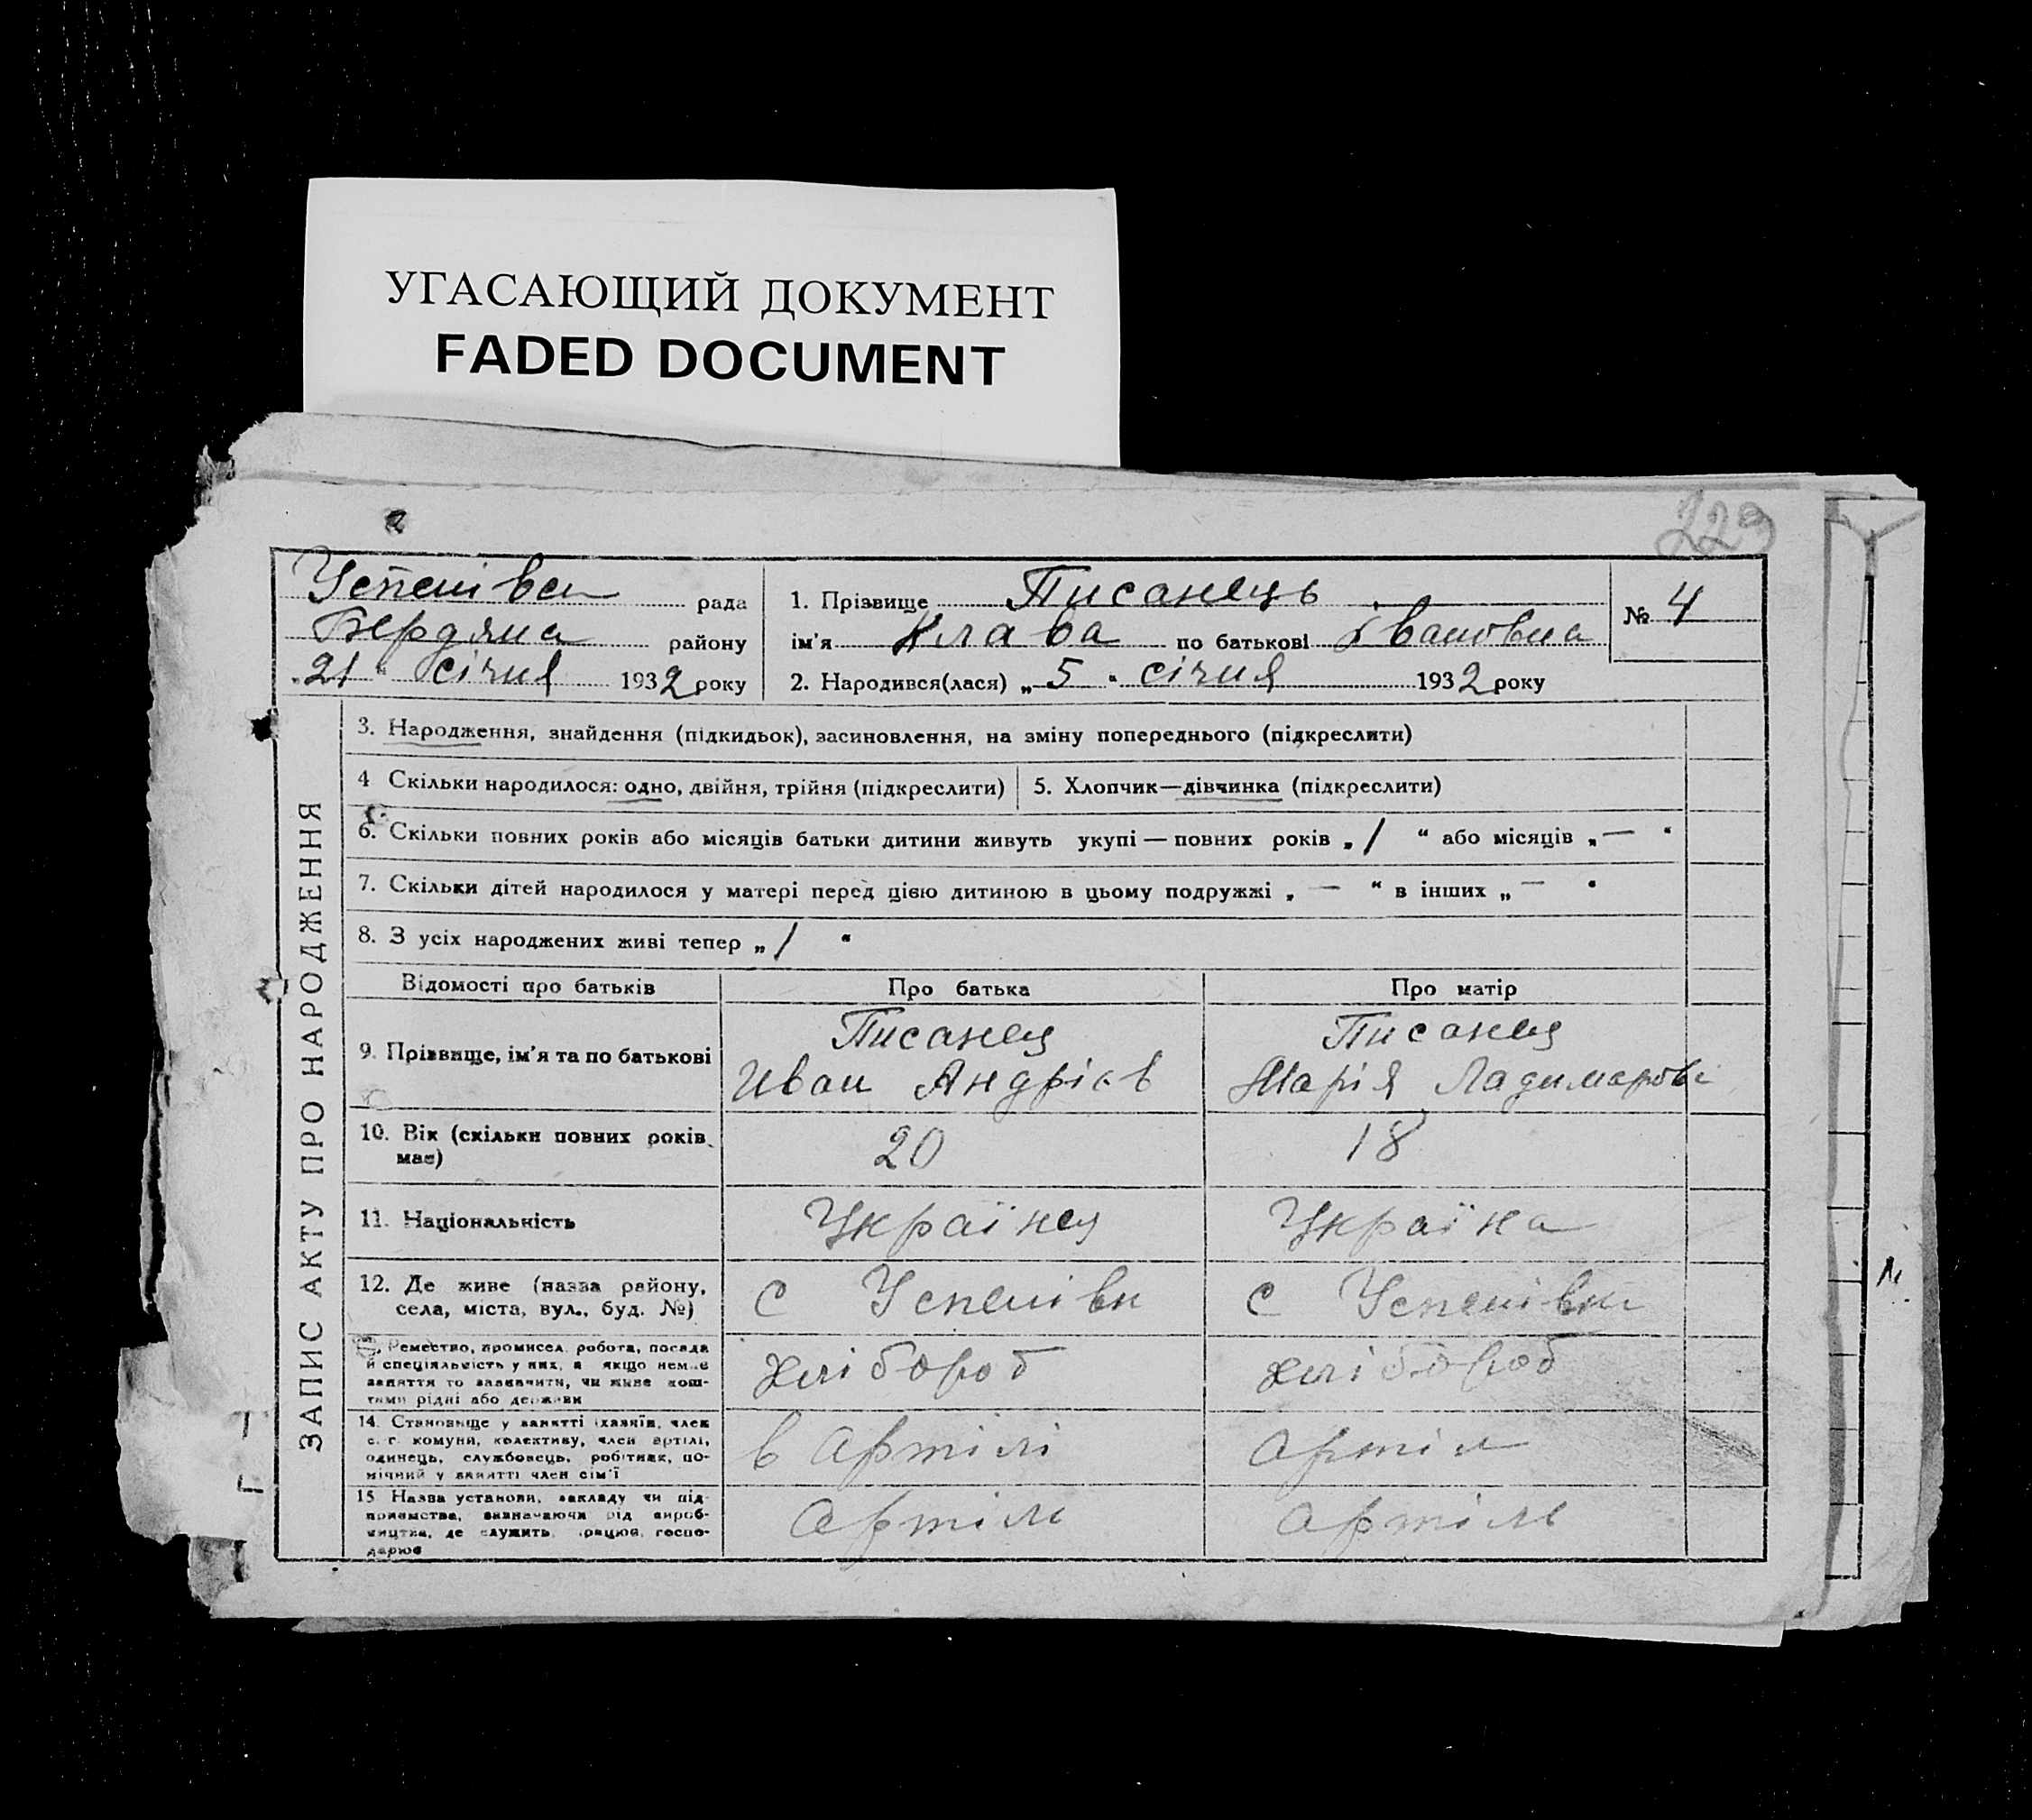 УГАСАЮЩИЙ ДОКУМЕНТ
FADED DOCUMENT
229
Успенівсн рада
Бердянсн району
„21" січня 1932 року
1. Прізвище Писанець
ім'я Клава по батькові Івановна
№ 4
2. Народився(лася) „5" січня 1932 року
ЗАПИС АКТУ ПРО НАРОДЖЕННЯ
3. Народження, знайдення (підкидьок), засиновлення, на зміну попереднього (підкреслити)
4 Скільки народилося: одно, двійня, трійня (підкреслити)
5. Хлопчик—дівчинка (підкреслити)
6. Скільки повних років або місяців батьки дитини живуть укупі — повних років „1" або місяців „—"
7. Скільки дітей народилося у матері перед цією дитиною в цьому подружжі „—" в інших „—"
8. З усіх народжених живі тепер „1"
Відомості про батьків
Про батька
Про матір
9. Прізвище, ім'я та по батькові
Писанец
Иван Андрієв
Писанец
Марія Ладимарові
10. Вік (скільки повних років
має)
20
18
11. Національність
Українец
Україна
12. Де живе (назва району,
села, міста, вул., буд. №)
с Успенівн
с Успенівки
Ремество, промисел, робота, посада
й спеціяльність у них, а якщо немає
заняття то зазначити, чи живе кош-
тами рідні або держави
хлібороб
хлібороб
14. Становище у занятті (хазяїн, член
с. г. комуни, колективу, член артілі,
одинець, службовець, робітник, по-
мічний у занятті член сім'ї
в артілі
артіл
15 Назва установи, закладу чи під-
приємства, визначаючи рід вироб-
ництва, де служить, працює, госпо-
дарює
артіль
артіль